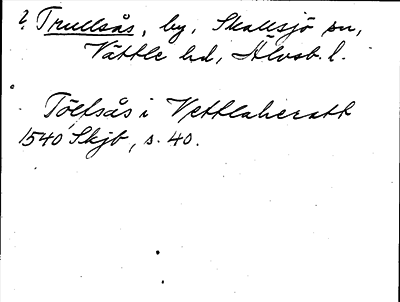 ? Trullsås, by, Skallsjö sn,
Vättle hd, Älvsb. l.
Tölfsås i Vettlaheratt
1540 Skjb, s. 40.